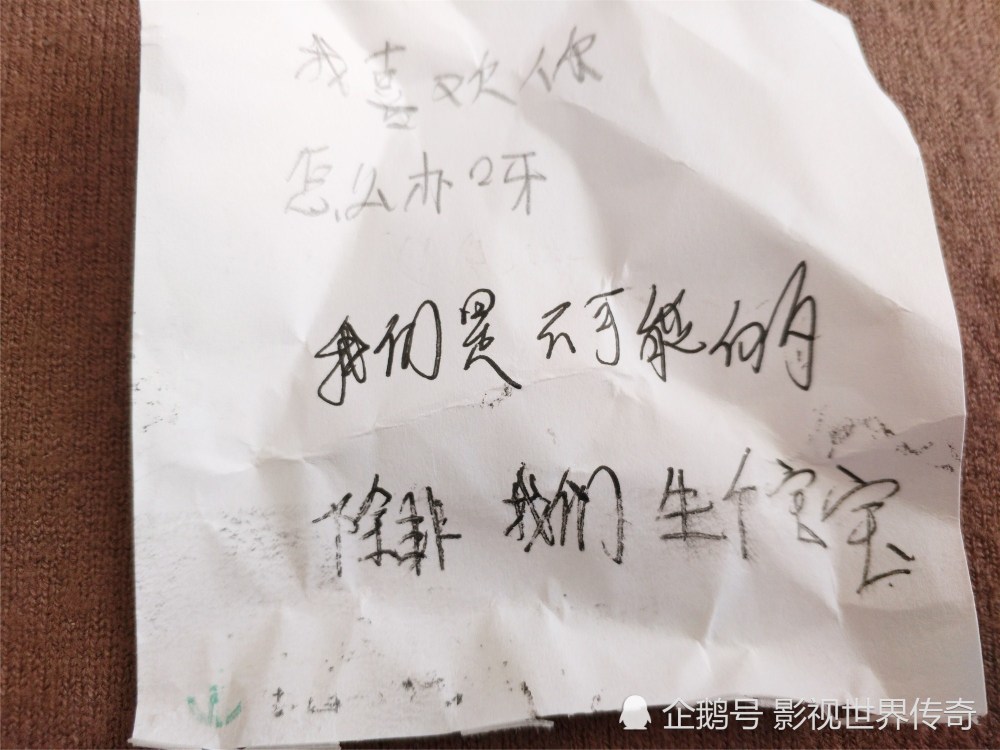 我喜欢你
怎么办呀
我们是不可能的
除非 我们生个宝宝
企鹅号 影视世界传奇